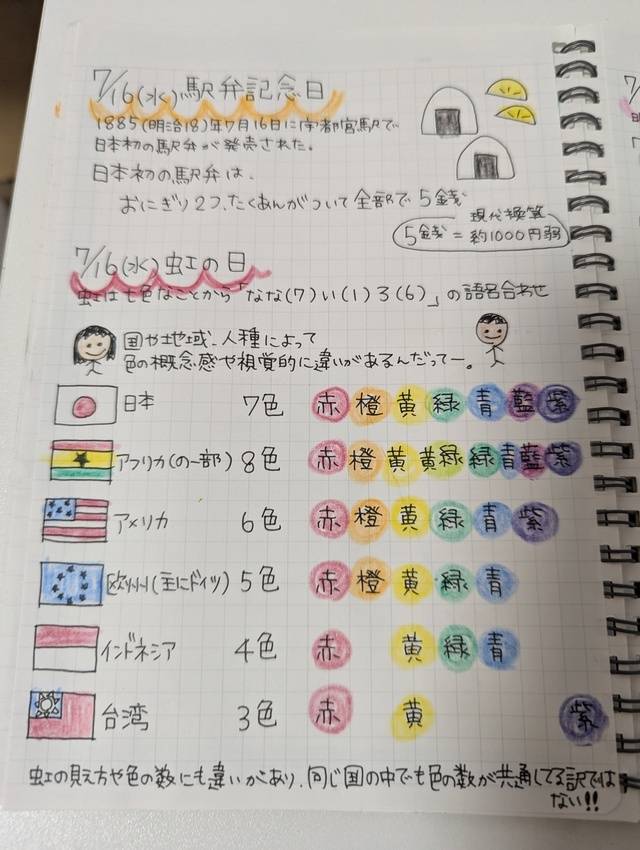 7/16(水)駅弁記念日
1885(明治18)年7月16日に宇都宮駅で
日本初の駅弁が発売された。
日本初の駅弁は、
おにぎり2つ、たくあんがついて全部で5銭
現代換算
5銭=約1000円弱
7/16(水)虹の日
虹は七色なことから「なな(7)い(1)ろ(6)」の語呂合わせ
国や地域、人種によって
色の概念感や視覚的に違いがあるんだってー。
日本 7色 赤 橙 黄 緑 青 藍 紫
アフリカ(の一部) 8色 赤 橙 黄 黄緑 緑 青 藍 紫
アメリカ 6色 赤 橙 黄 緑 青 紫
欧州(主にドイツ) 5色 赤 橙 黄 緑 青
インドネシア 4色 赤 黄 緑 青
台湾 3色 赤 黄 紫
虹の見え方や色の数にも違いがあり、同じ国の中でも色の数が共通してる訳では
ない!!